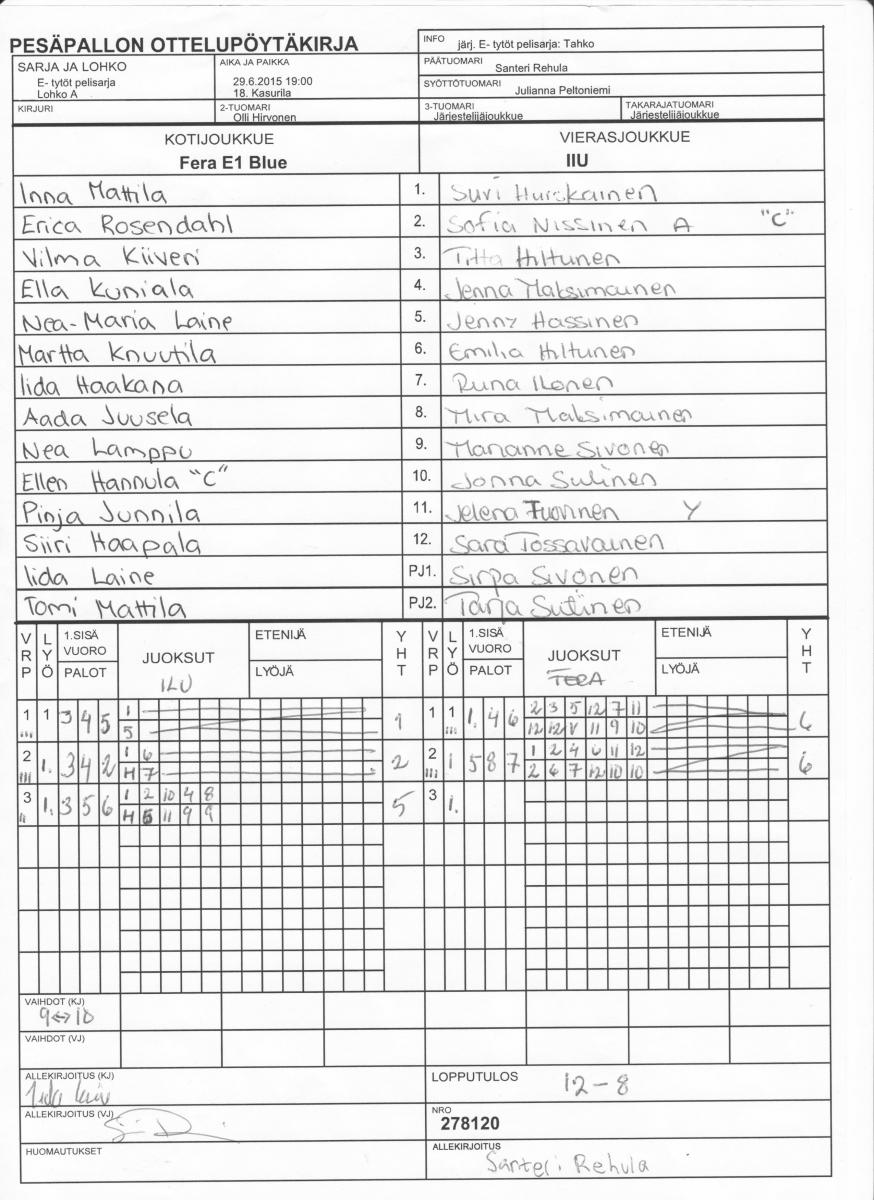 PESÄPALLON OTTELUPÖYTÄKIRJA
INFO järj. E- tytöt pelisarja: Tahko
SARJA JA LOHKO
E- tytöt pelisarja
Lohko A
AIKA JA PAIKKA
29.6.2015 19:00
18. Kasurila
PÄÄTUOMARI
Santeri Rehula
SYÖTTÖTUOMARI
Julianna Peltoniemi
KIRJURI
2-TUOMARI
Olli Hirvonen
3-TUOMARI
Järjestelijäjoukkue
TAKARAJATUOMARI
Järjestelijäjoukkue
KOTIJOUKKUE VIERASJOUKKUE
Fera E1 Blue IIU
Inna Mattila 1. Suvi Hurskainen
Erica Rosendahl 2. Sofia Nissinen A "C"
Vilma Kiiveri 3. Titta Hiltunen
Ella Kuniala 4. Jenna Maksimainen
Nea-Maria Laine 5. Jenny Hassinen
Martta Knuutila 6. Emilia Hiltunen
Iida Haakana 7. Runa Ilonen
Aada Juusela 8. Mira Maksimainen
Nea Lamppu 9. Marianne Sivonen
Ellen Hannula "C" 10. Jonna Sutinen
Pinja Junnila 11. Jelena Tuovinen Y
Siiri Haapala 12. Sara Tossavainen
Iida Laine PJ1. Sirpa Sivonen
Tomi Mattila PJ2. Tarja Sutinen
VRP LYÖ 1.SISÄ VUORO PALOT JUOKSUT ETENIJÄ LYÖJÄ YHT VRP LYÖ 1.SISÄ VUORO PALOT JUOKSUT ETENIJÄ LYÖJÄ YHT
FERA
1 1 3 4 5 1 1 1 1 1. 4 6 2 3 5 12 7 11 6
5 12 12 V 11 9 10
2 1. 3 4 2 1 6 2 2 1 5 8 7 1 2 4 6 11 12 6
H 7 2 6 7 12 10 10
3 1. 3 5 6 1 2 10 4 8 5 3 1.
H 5 11 9 9
VAIHDOT (KJ)
9↔10
VAIHDOT (VJ)
ALLEKIRJOITUS (KJ)
LOPPUTULOS 12-8
ALLEKIRJOITUS (VJ)
NRO
278120
HUOMAUTUKSET
ALLEKIRJOITUS
Santeri Rehula